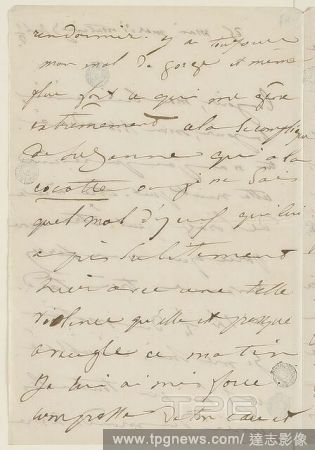 rendormir, j'ai toujours
mon mal de gorge et même
plus fort ce qui me gêne
extrêmement a la
de Suzanne qui a la
cocotte ou je ne sais
quel mal d'yeux qui lui
a pris subitement
hier avec une telle
violence qu'elle est presque
aveugle ce matin
Je lui ai mis force
compresse d'eau et
TPG
www.tpgnews.com / 達志影像